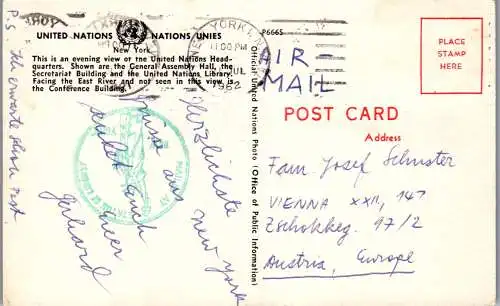 UNITED NATIONS NATIONS UNIES
New York
This is an evening view of the United Nations Head-
quarters. Shown are the General Assembly Hall, the
Secretariat Building and the United Nations Library.
Facing the East River and not seen in this view is
the Conference Building.
P6665
Official United Nations Photo (Office of Public Information)
NEW YORK, N.Y.
11:00 PM
JUL
1962
PLACE
STAMP
HERE
AIR-
MAIL
POST CARD
Address
Fam. Josef Schuster
VIENNA XXII, 147
Zschokkeg. 97/2
Austria, Europe
Herzlichste
Grüsse aus New York
sendet Euch
Euer
Gerhard
P.S. Ich erwarte schon Post.